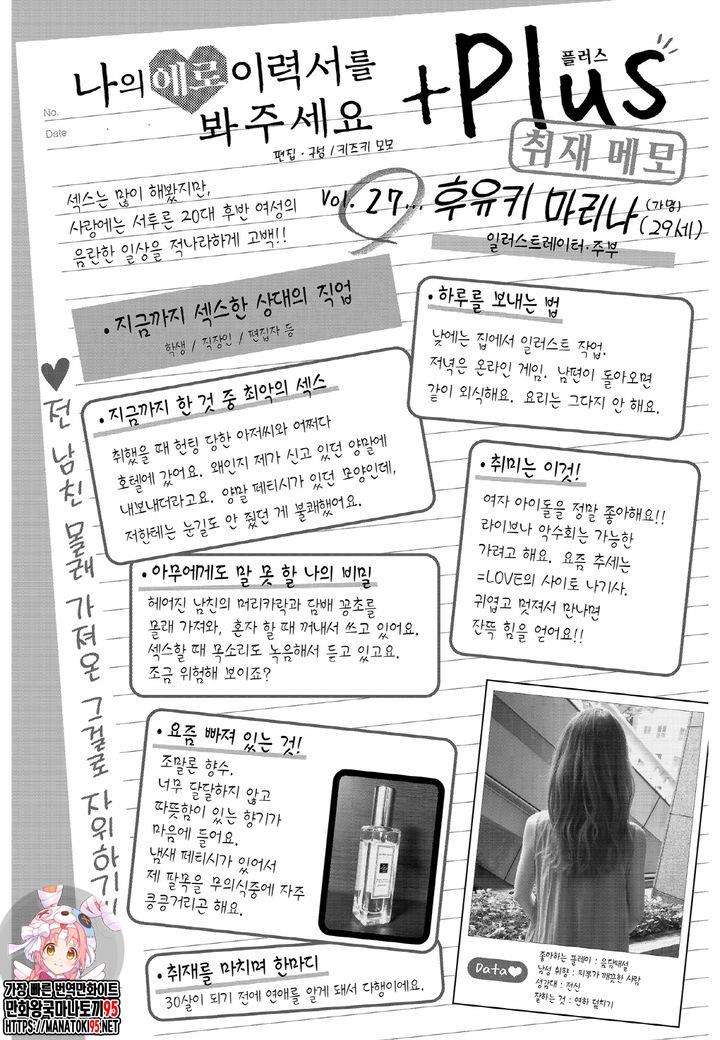 나의 에로 이력서를
봐 주세요
+Plus
플러스
취재 메모
No.
Date
편집·구성 / 키즈키 모모
섹스는 많이 해봤지만,
사랑에는 서투른 20대 후반 여성의
음란한 일상을 적나라하게 고백!!
Vol. 27... 후유키 마리나 (가명)
(29세)
일러스트레이터·주부
• 지금까지 섹스한 상대의 직업
학생 / 직장인 / 편집자 등
• 하루를 보내는 법
낮에는 집에서 일러스트 작업.
저녁은 온라인 게임. 남편이 돌아오면
같이 외식해요. 요리는 그다지 안 해요.
♥전 남친 몰래 가져온 그걸로 자위하기!
• 지금까지 한 것 중 최악의 섹스
취했을 때 헌팅 당한 아저씨와 어쩌다
호텔에 갔어요. 왜인지 제가 신고 있던 양말에
내보내더라고요. 양말 페티시가 있던 모양인데,
저한테는 눈길도 안 줬던 게 불쾌했어요.
• 취미는 이것!
여자 아이돌을 정말 좋아해요!!
라이브나 악수회는 가능한
가려고 해요. 요즘 추세는
=LOVE의 사이토 나기사.
귀엽고 멋져서 만나면
잔뜩 힘을 얻어요!!
• 아무에게도 말 못 할 나의 비밀
헤어진 남친의 머리카락과 담배 꽁초를
몰래 가져와, 혼자 할 때 꺼내서 쓰고 있어요.
섹스할 때 목소리도 녹음해서 듣고 있고요.
조금 위험해 보이죠?
• 요즘 빠져 있는 것!
조말론 향수.
너무 달달하지 않고
따뜻함이 있는 향기가
마음에 들어요.
냄새 페티시가 있어서
제 팔목을 무의식중에 자주
킁킁거리곤 해요.
• 취재를 마치며 한마디
30살이 되기 전에 연애를 알게 돼서 다행이에요.
Data♥
좋아하는 플레이 : 음담패설
남성 취향 : 피부가 깨끗한 사람
성감대 : 전신
잘하는 것 : 연하 덮치기
가장 빠른 번역만화사이트
만화왕국마나토끼95
HTTPS://MANATOKI95.NET